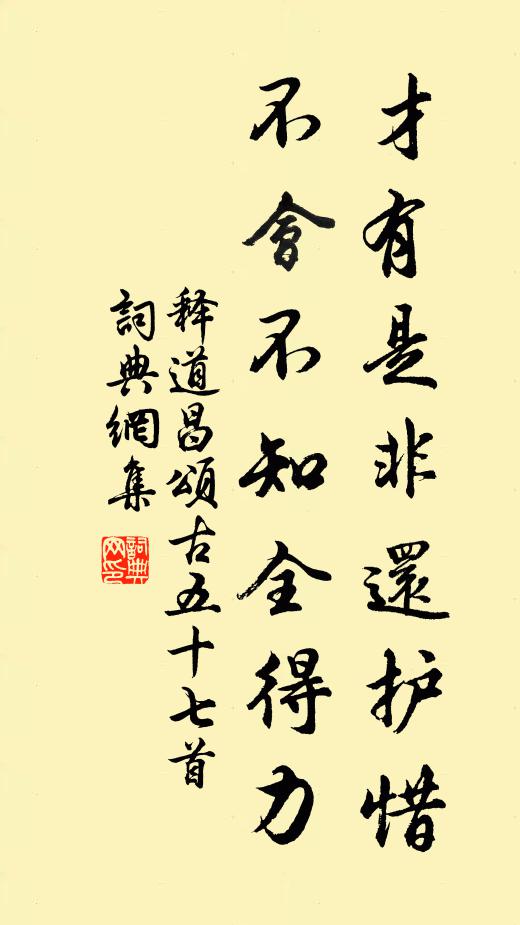 才有是非還护惜
不會不知全得力
释道昌頌古五十七首
詞典網集
詞典
网印